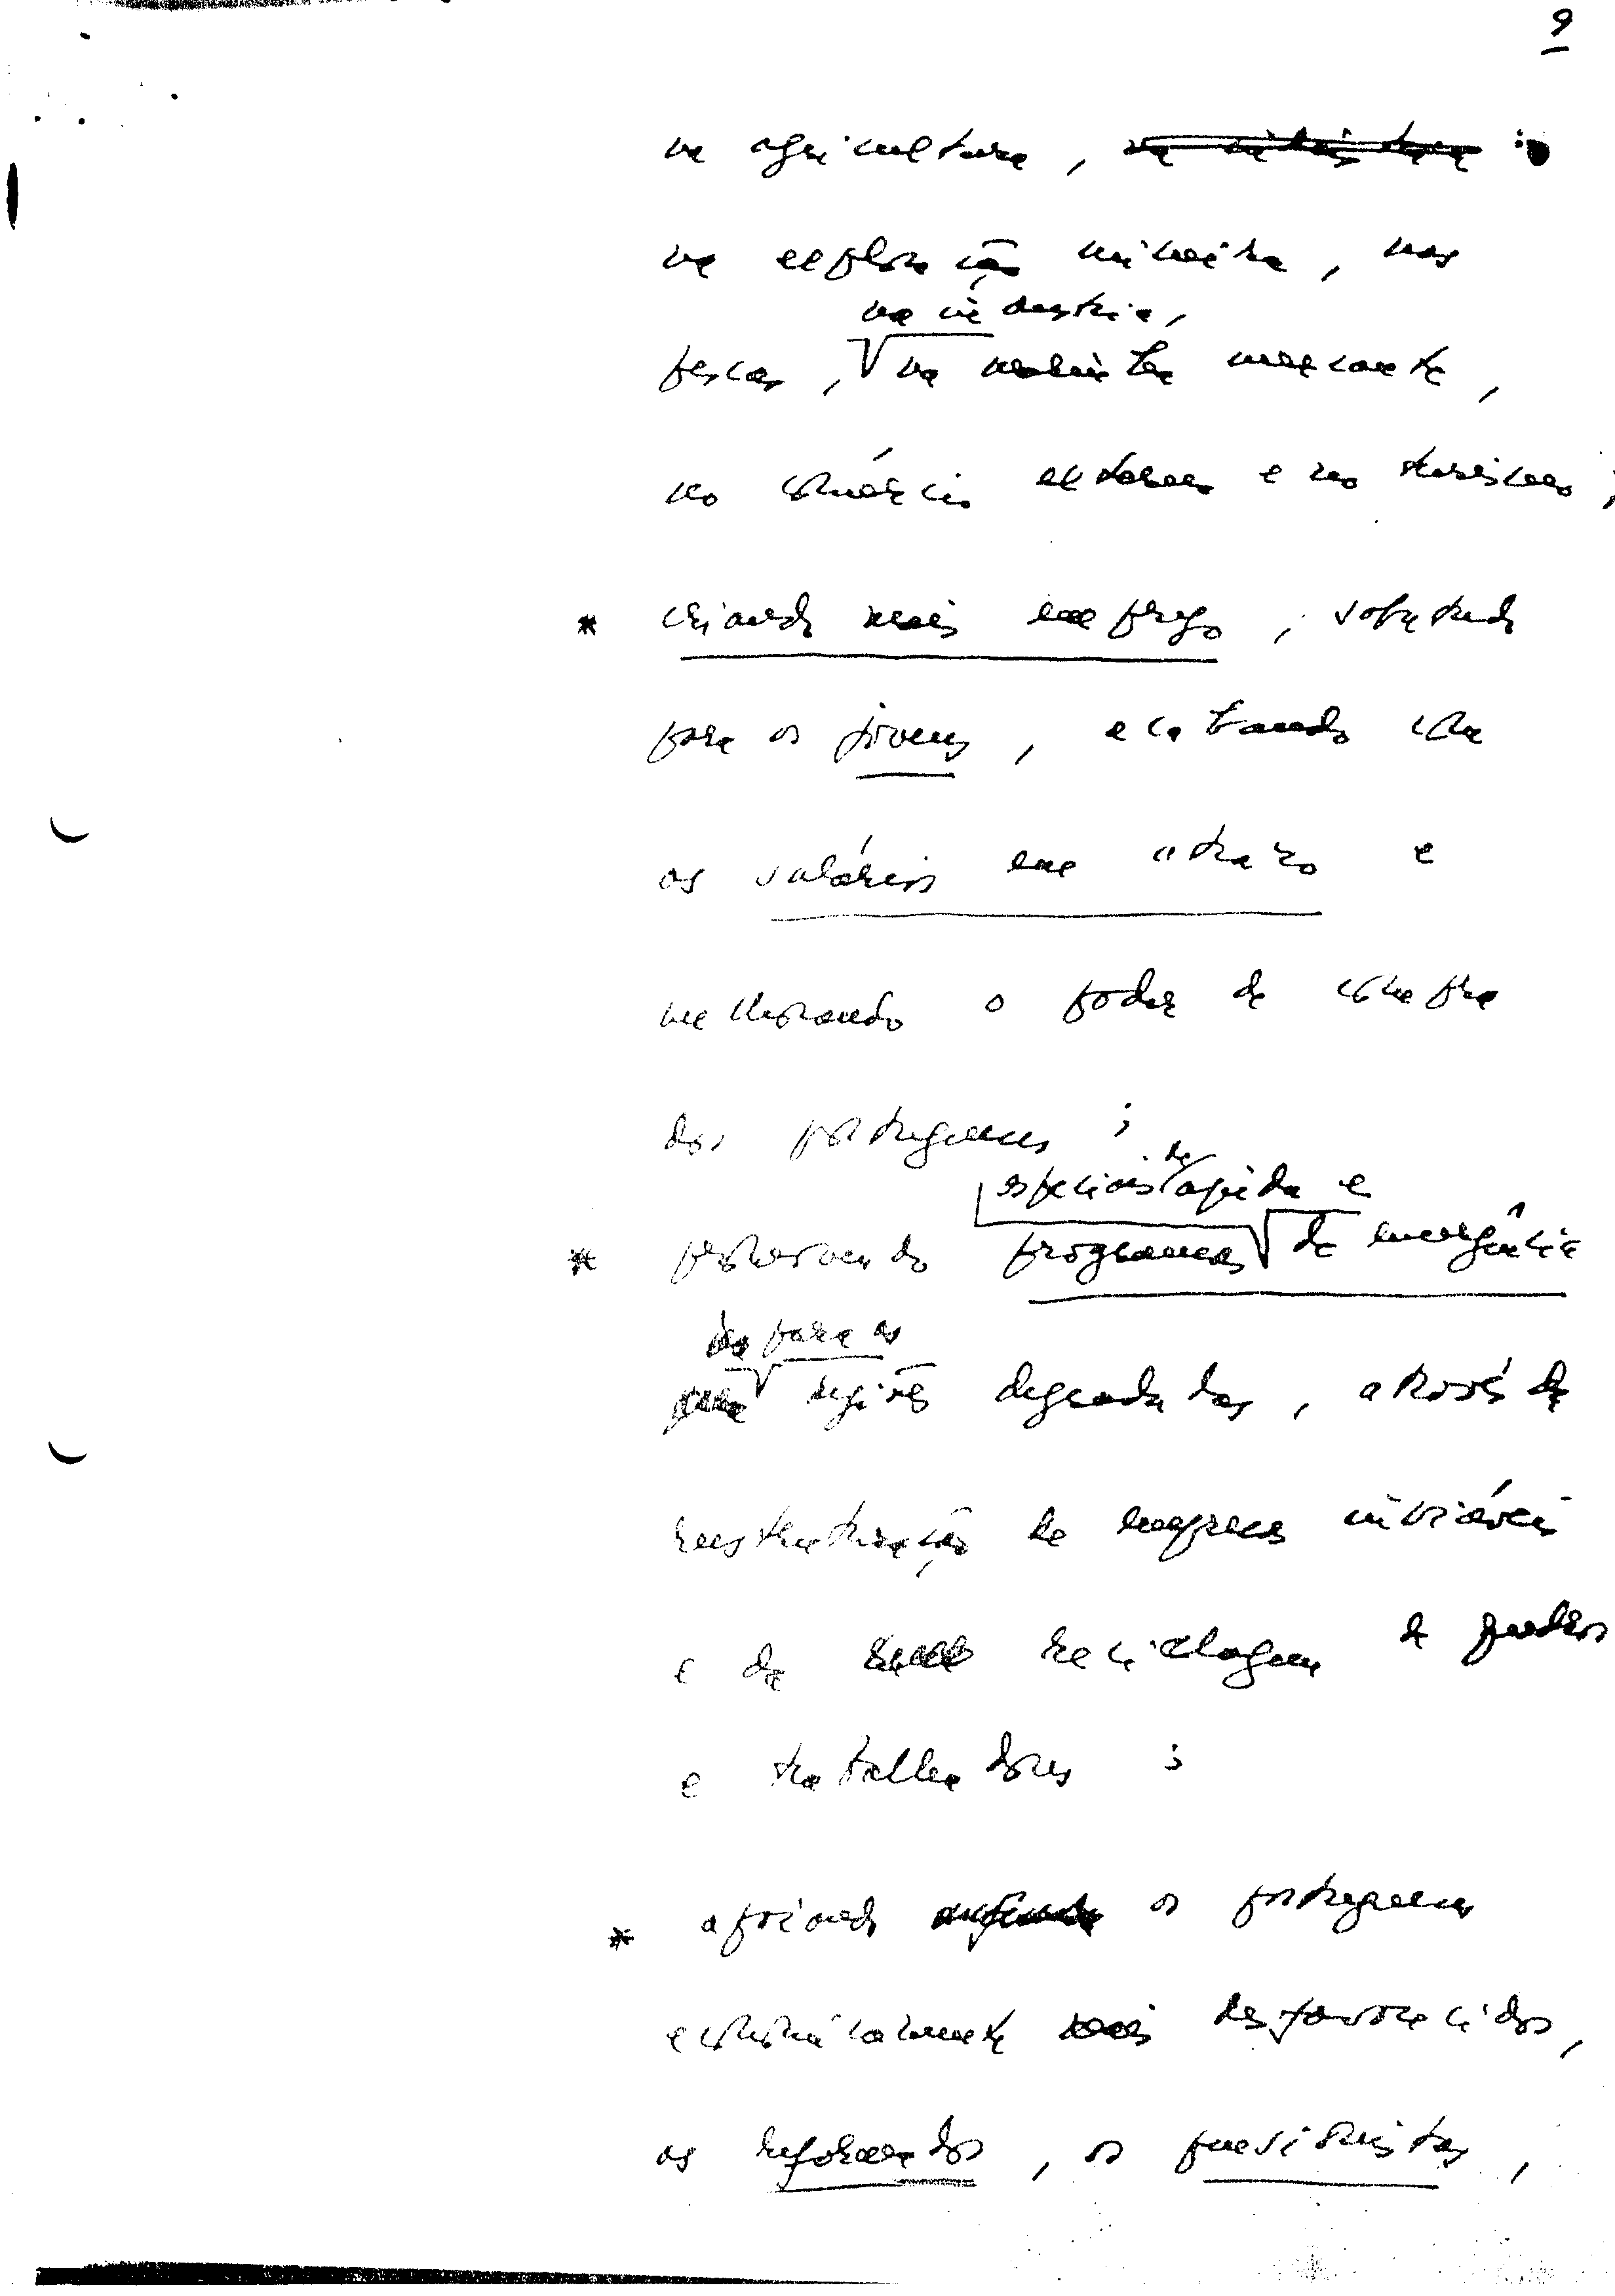 9
na agricultura, na indústria
na exploração mineira, nas
na indústria,
pescas, na marinha mercante,
no comércio externo e no turismo;
* criando mais emprego, sobretudo
para os jovens, acabando com
os salários em atrazo e
melhorando o poder de compra
dos portugueses;
especiais de apoio e
* promovendo programas de emergência
para as
regiões degradadas, através da
reestruturação de empresas inviáveis
e da reciclagem de quadros
e trabalhadores;
* apoiando os portugueses
economicamente mais desfavorecidos,
os reformados, os pensionistas,